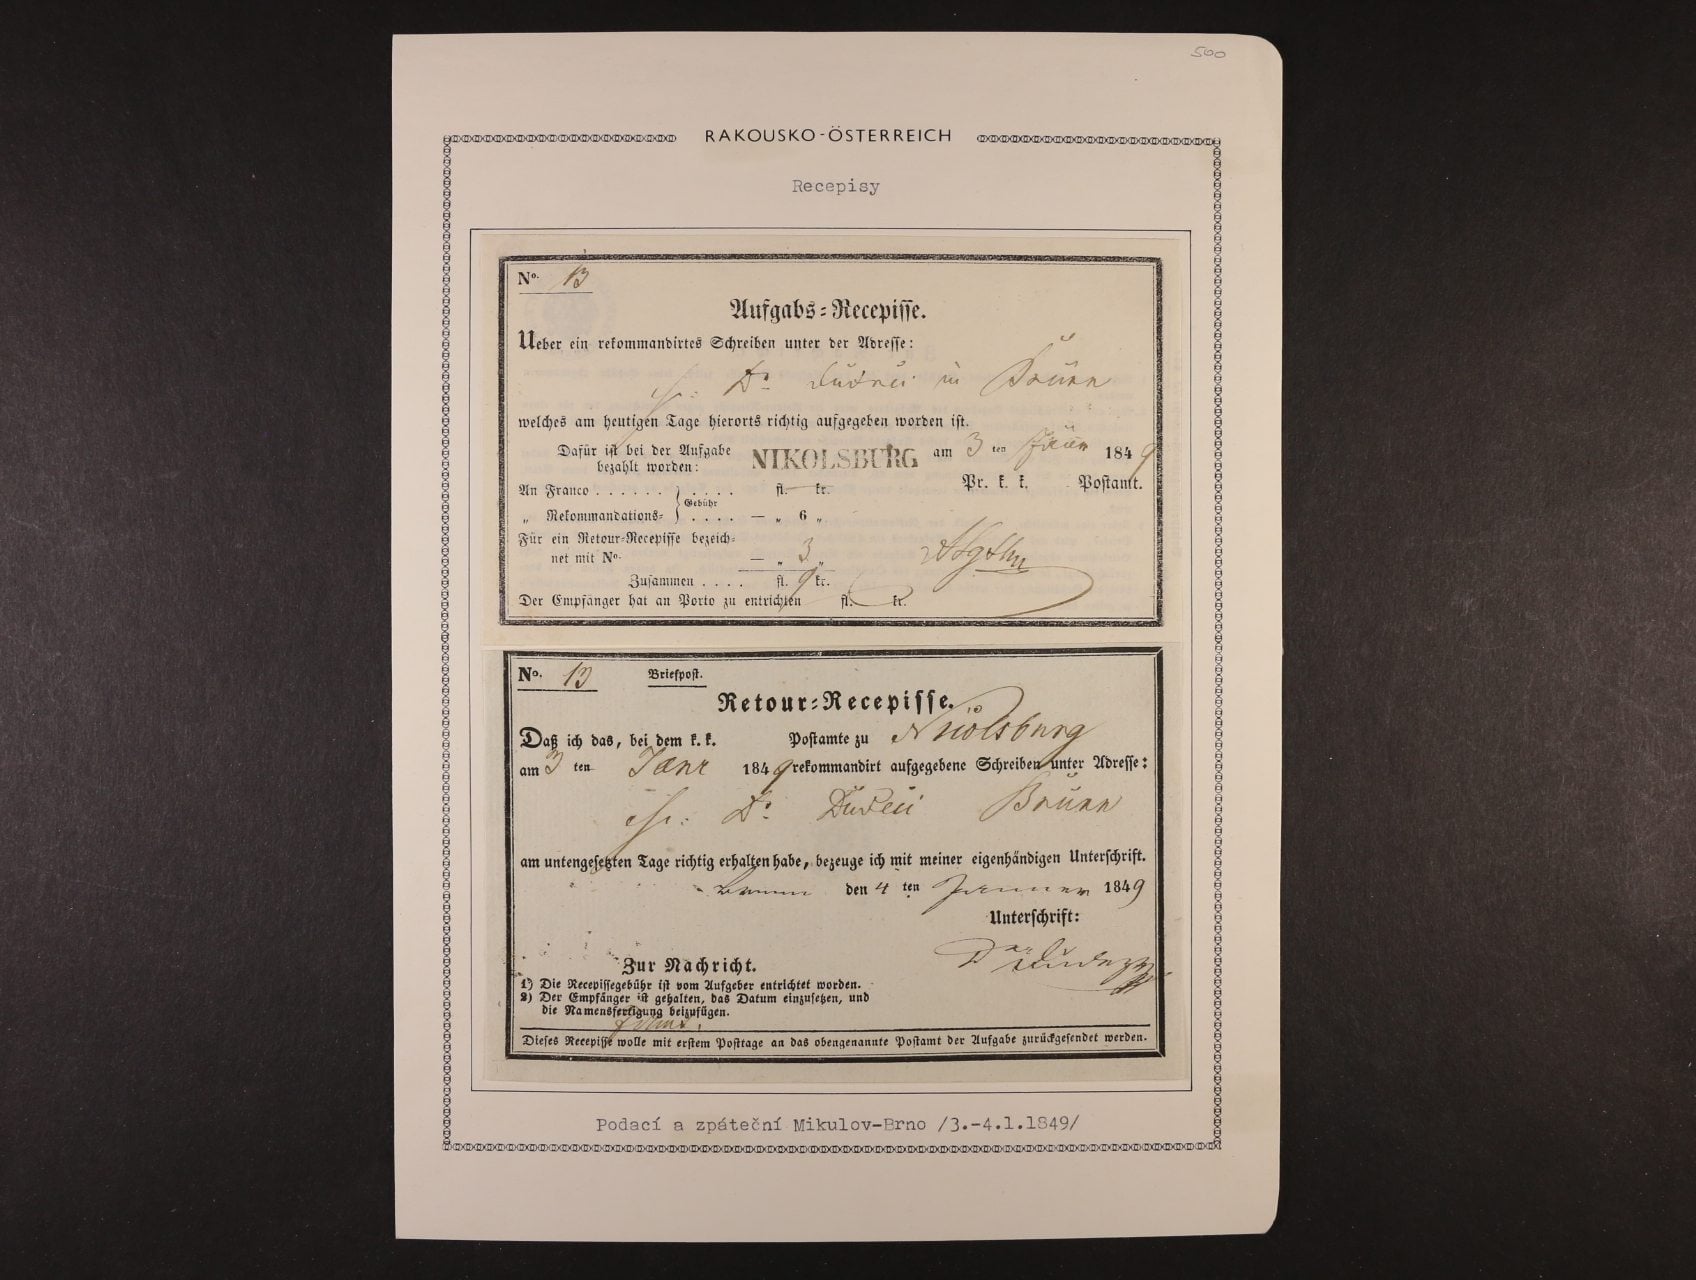 500
RAKOUSKO-ÖSTERREICH
Recepisy
No. 13
Aufgabs-Recepisse.
Ueber ein rekommandirtes Schreiben unter der Adresse:
Dr. in Brünn
welches am heutigen Tage hierorts richtig aufgegeben worden ist.
Dafür ist bei der Aufgabe bezahlt worden:
NIKOLSBURG am 3 ten Jän 1849
Pr. k. k. Postamt.
An Franco . . . . . . } . . . . fl. kr.
Gebühr
„ Rekommandations- } . . . . — „ 6 „
Für ein Retour-Recepisse bezeich-
net mit No. — „ 3 „
Zusammen . . . . fl. 9 kr.
Der Empfänger hat an Porto zu entrichten fl. kr.
No. 13 Briefpost.
Retour-Recepisse.
Daß ich das, bei dem k. k. Postamte zu Nikolsburg
am 3 ten Jänr 1849 rekommandirt aufgegebene Schreiben unter Adresse:
Dr. Brünn
am untengesetzten Tage richtig erhalten habe, bezeuge ich mit meiner eigenhändigen Unterschrift.
Brünn den 4 ten Jänner 1849
Unterschrift:
Zur Nachricht.
1) Die Recepissegebühr ist vom Aufgeber entrichtet worden.
2) Der Empfänger ist gehalten, das Datum einzusetzen, und
die Namensfertigung beizufügen.
Dieses Recepisse wolle mit erstem Posttage an das obengenannte Postamt der Aufgabe zurückgesendet werden.
Podací a zpáteční Mikulov-Brno /3.-4.1.1849/